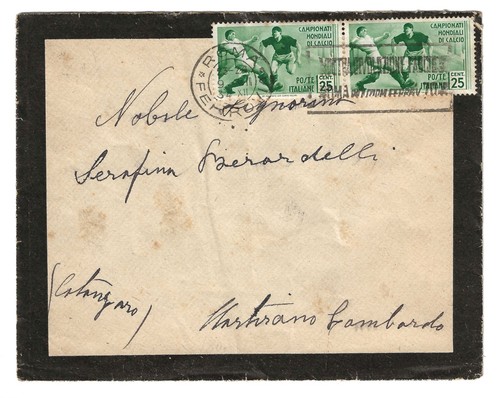 CAMPIONATI
MONDIALI
DI CALCIO
POSTE
ITALIANE
CENT.
25
CAMPIONATI
MONDIALI
DI CALCIO
POSTE
ITALIANE
CENT.
25
ROMA
FERROVIA
XII
Nobile Signorina
Serafina Berardelli
(Catanzaro)
Martirano Lombardo